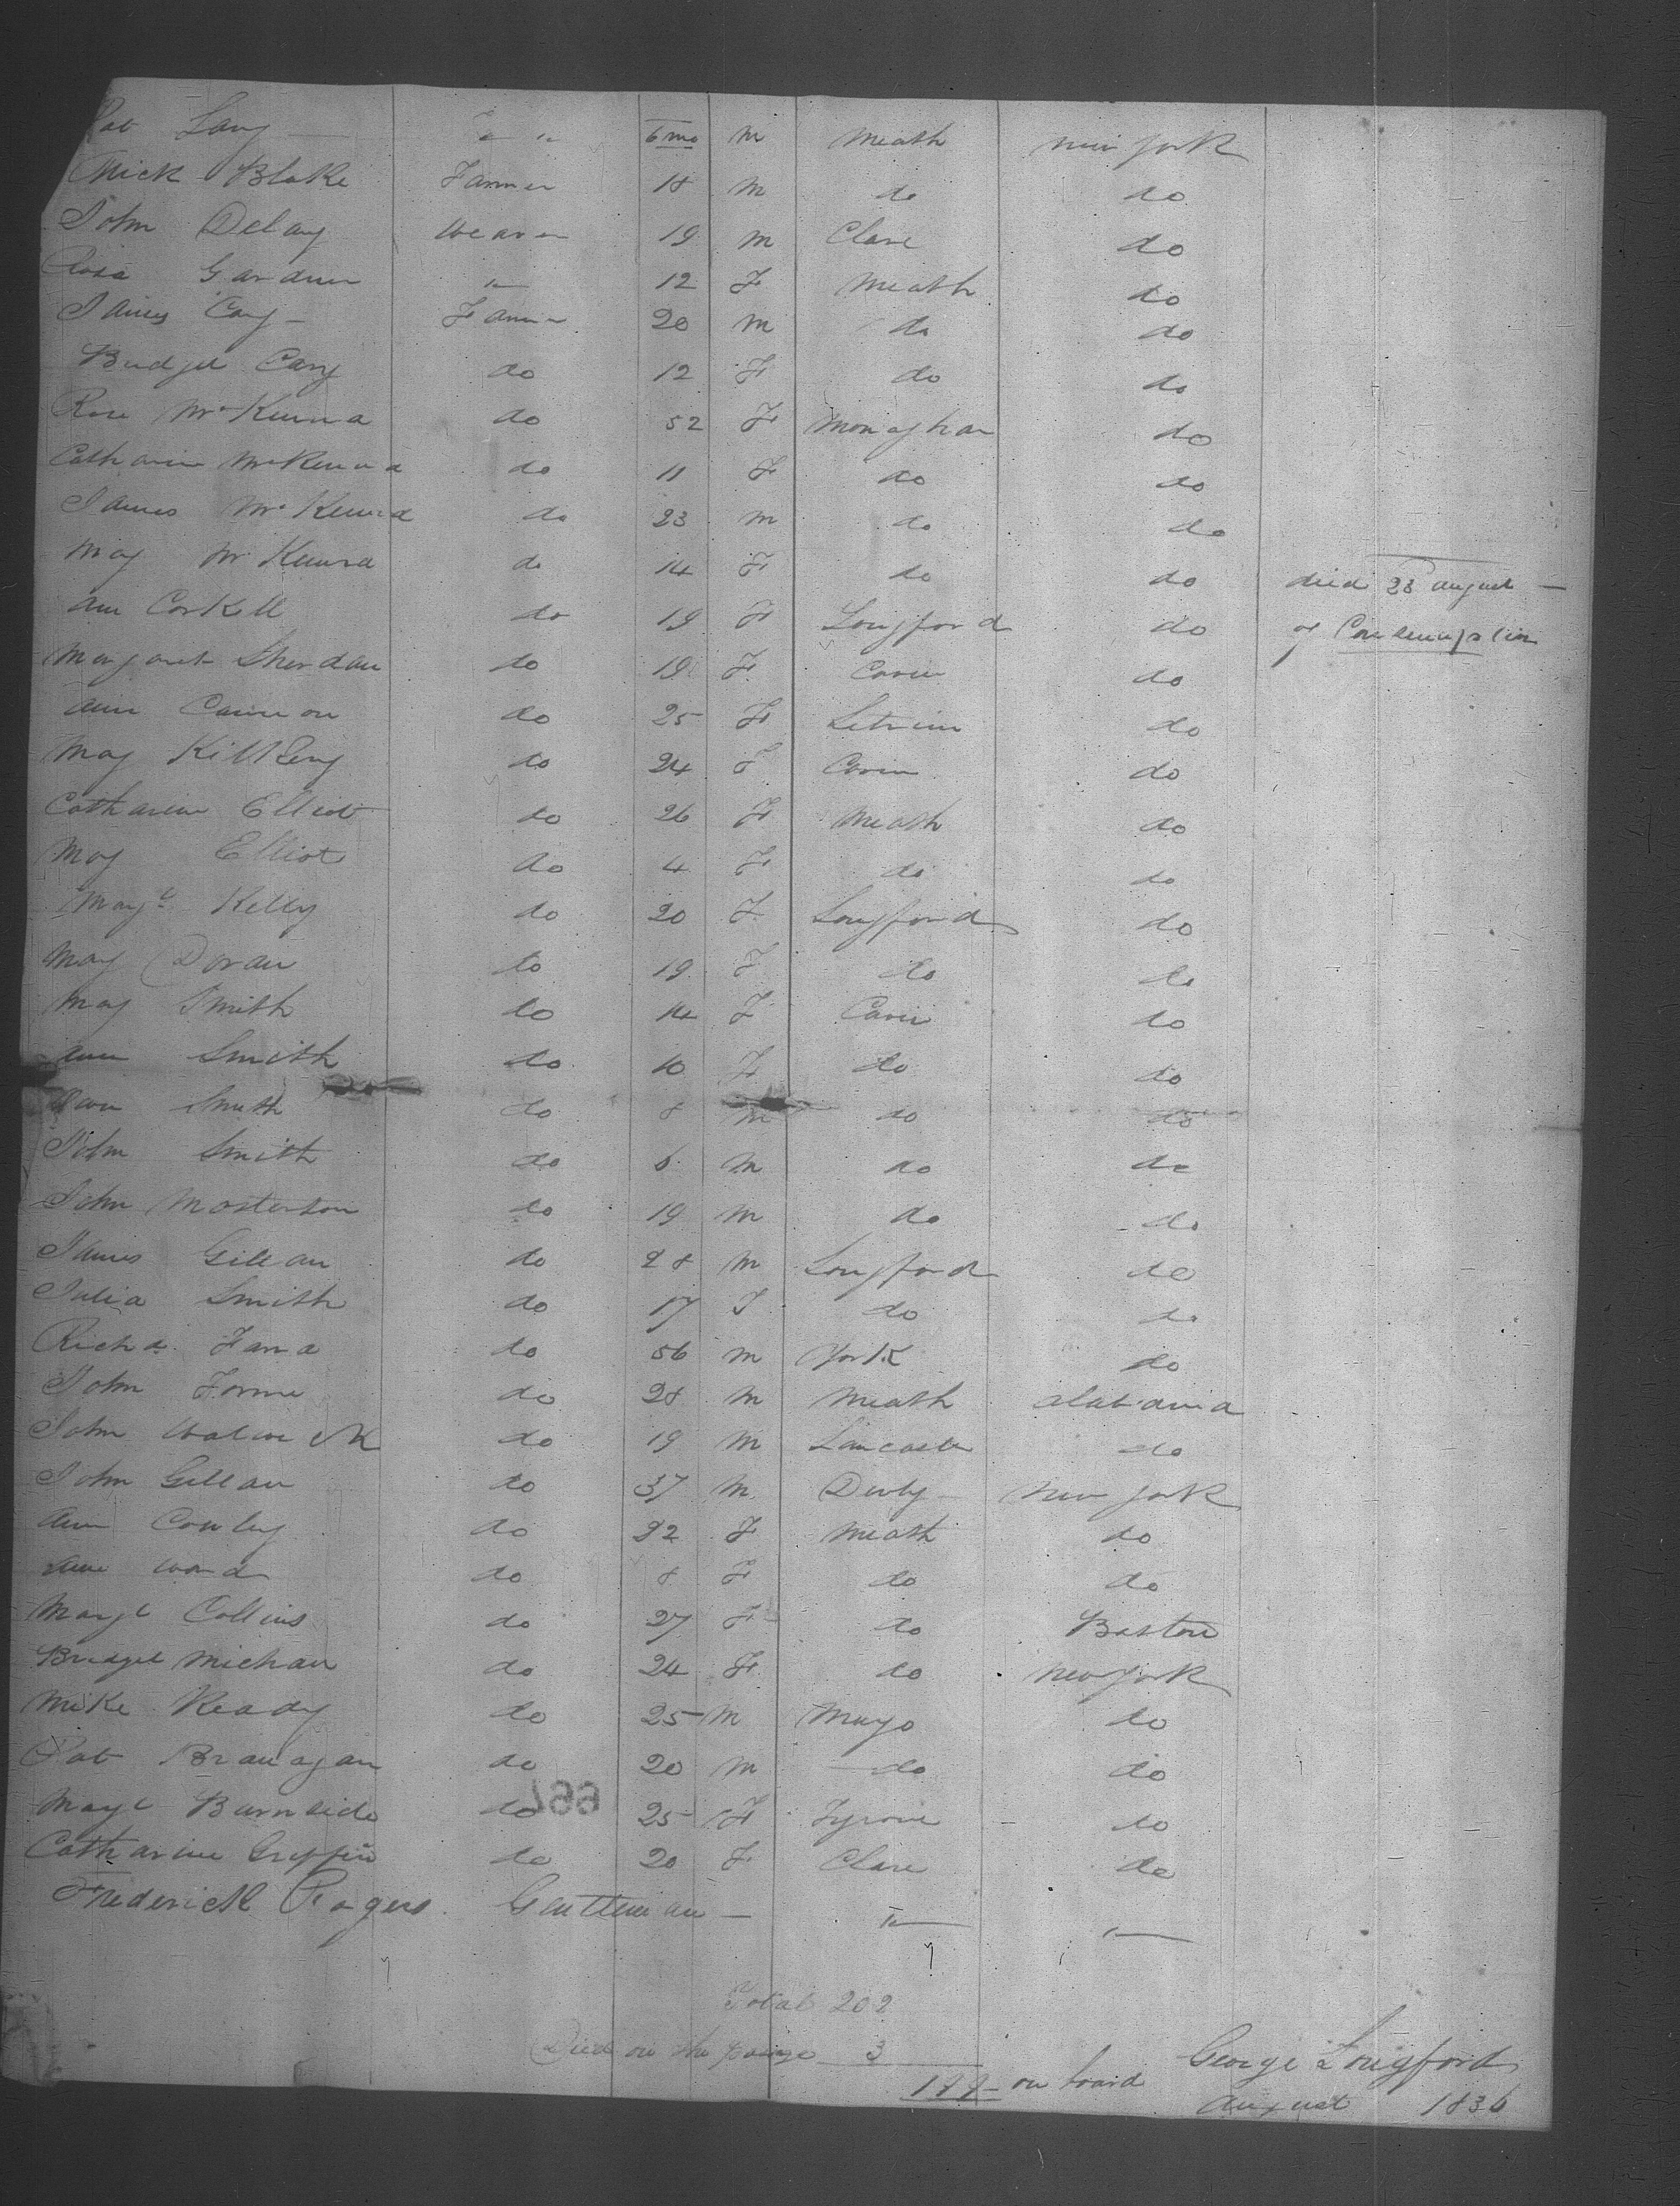 Pat Lany — " " 6 mo m Meath new york
Mick Blake Farmer 18 m do do
John Delany Weaver 19 m Clare do
Rosa Gardner " 12 F Meath do
James Cary — Farmer 20 m do do
Bridget Cary do 12 F do do
Rose McKenna do 52 F Monaghan do
Catharine McKenna do 11 F do do
James McKenna do 23 m do do
May McKenna do 14 F do do died 23 august —
Ann Corkell do 19 F Longford do of Consumption
Margaret Sherdan do 19 F Cavin do
Ann Cannon do 25 F Letrim do
May do 24 F Cavin do
Catharine Elliot do 26 F Meath do
May Elliot do 4 F do do
Mayt Kelly do 20 F Longford do
May Doran do 19 F do do
May Smith do 14 F Cavin do
Ann Smith do 10 F do do
Smith do 8 m do do
John Smith do 6 m do do
John Masterson do 19 m do do
James Gillan do 28 m Longford do
Julia Smith do 17 F do do
Richd. do 56 m York do
John do 28 m Meath alabama
John do 19 m Lancaster do
John Gillan do 37 m Derby new york
Ann Conley do 22 F Meath do
Ward do 8 F do do
Mayt Collins do 27 F do Boston
Bridget Michan do 24 F do new york
Mike Ready do 25 m Mayo do
Pat Branagan do 20 m do do
Mayt Burnside do 25 F Tyrone do
Catharine Griffin do 20 F Clare do
Frederick Rogers. Gentleman — " "
Total 202
Died on the passage 3
199 on board George Longford
August 1836